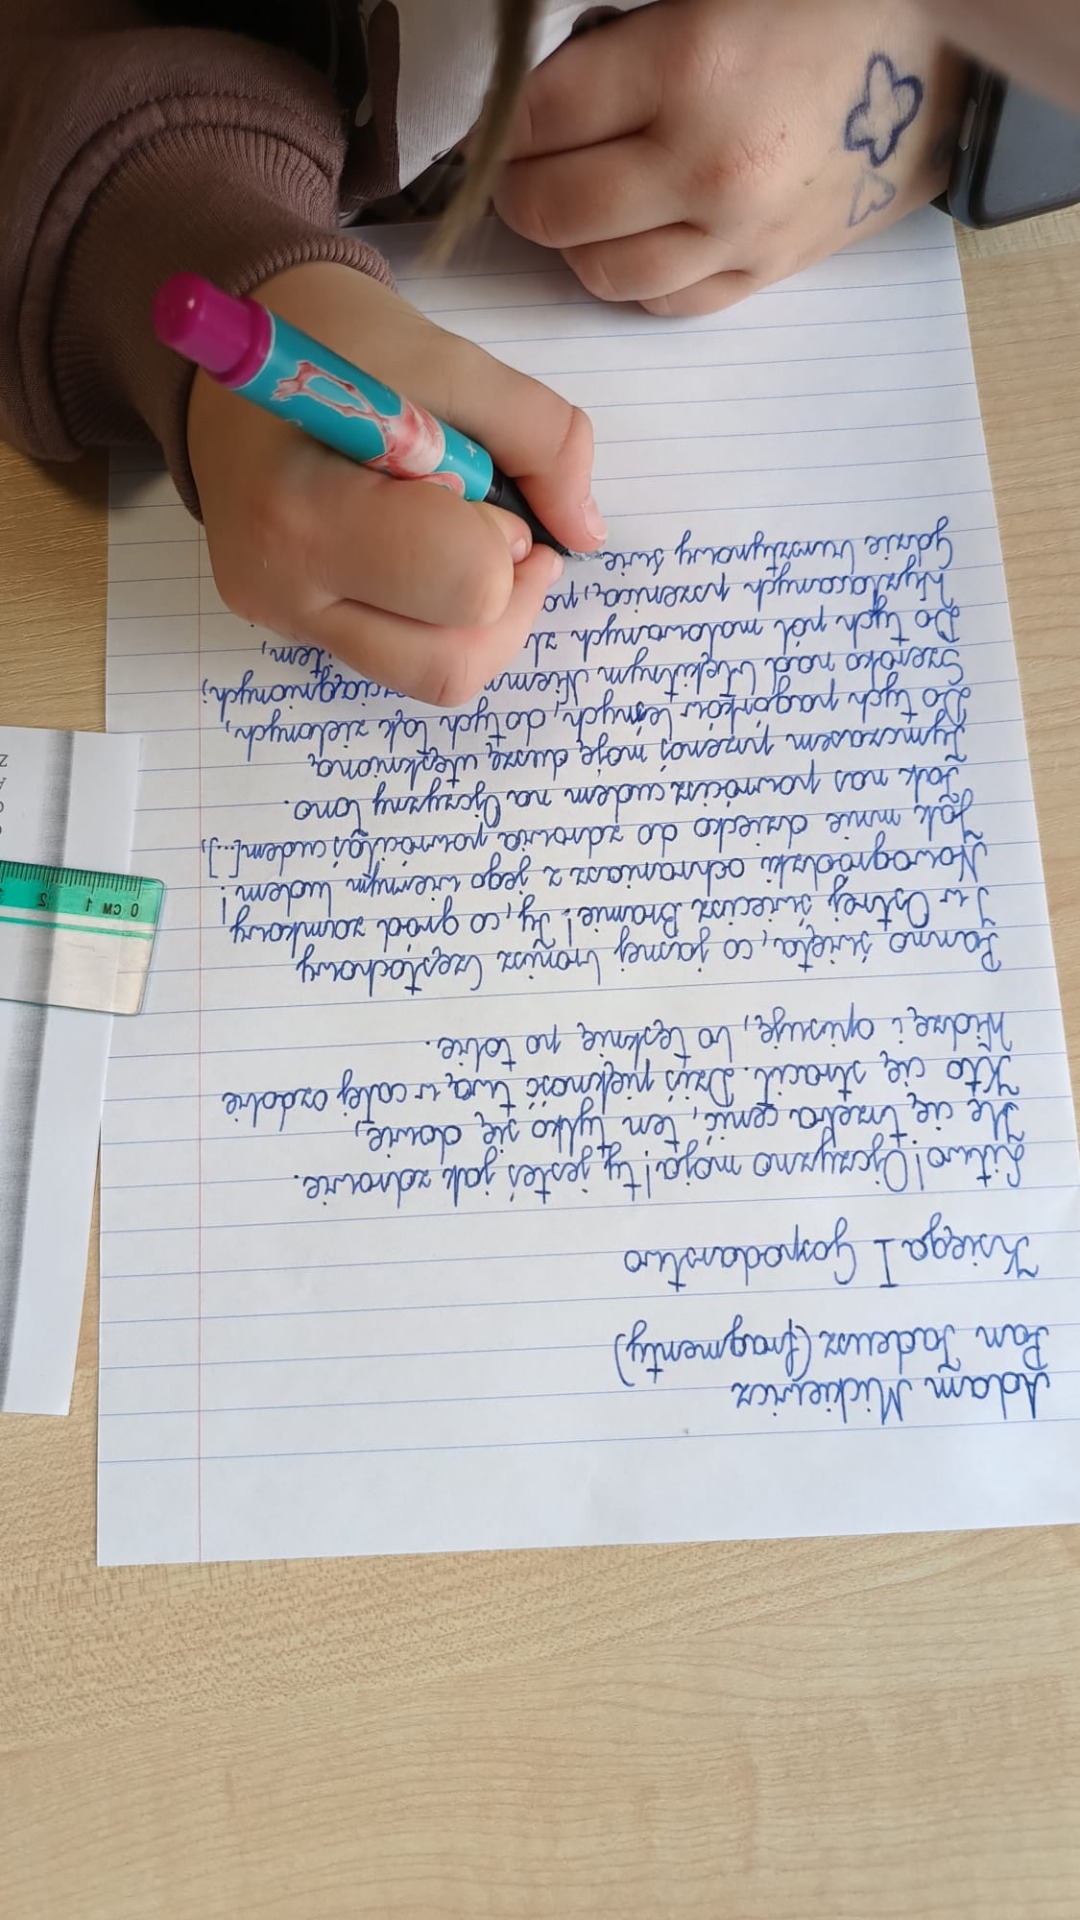 Adam Mickiewicz
Pan Tadeusz (fragmenty)
Księga I Gospodarstwo
Litwo! Ojczyzno moja! ty jesteś jak zdrowie.
Ile cię trzeba cenić, ten tylko się dowie,
Kto cię stracił. Dziś piękność twą w całej ozdobie
Widzę i opisuję, bo tęsknię po tobie.
Panno święta, co jasnej bronisz Częstochowy
I w Ostrej świecisz Bramie! Ty, co gród zamkowy
Nowogródzki ochraniasz z jego wiernym ludem!
Jak mnie dziecko do zdrowia powróciłaś cudem [...],
Jak nas powrócisz cudem na Ojczyzny łono.
Tymczasem przenoś moję duszę utęsknioną
Do tych pagórków leśnych, do tych łąk zielonych,
Szeroko nad błękitnym Niemn ciągnionych;
Do tych pól malowanych zb item,
Wyzłacanych pszenicą, po
Gdzie bursztynowy świe
0 CM 1 2